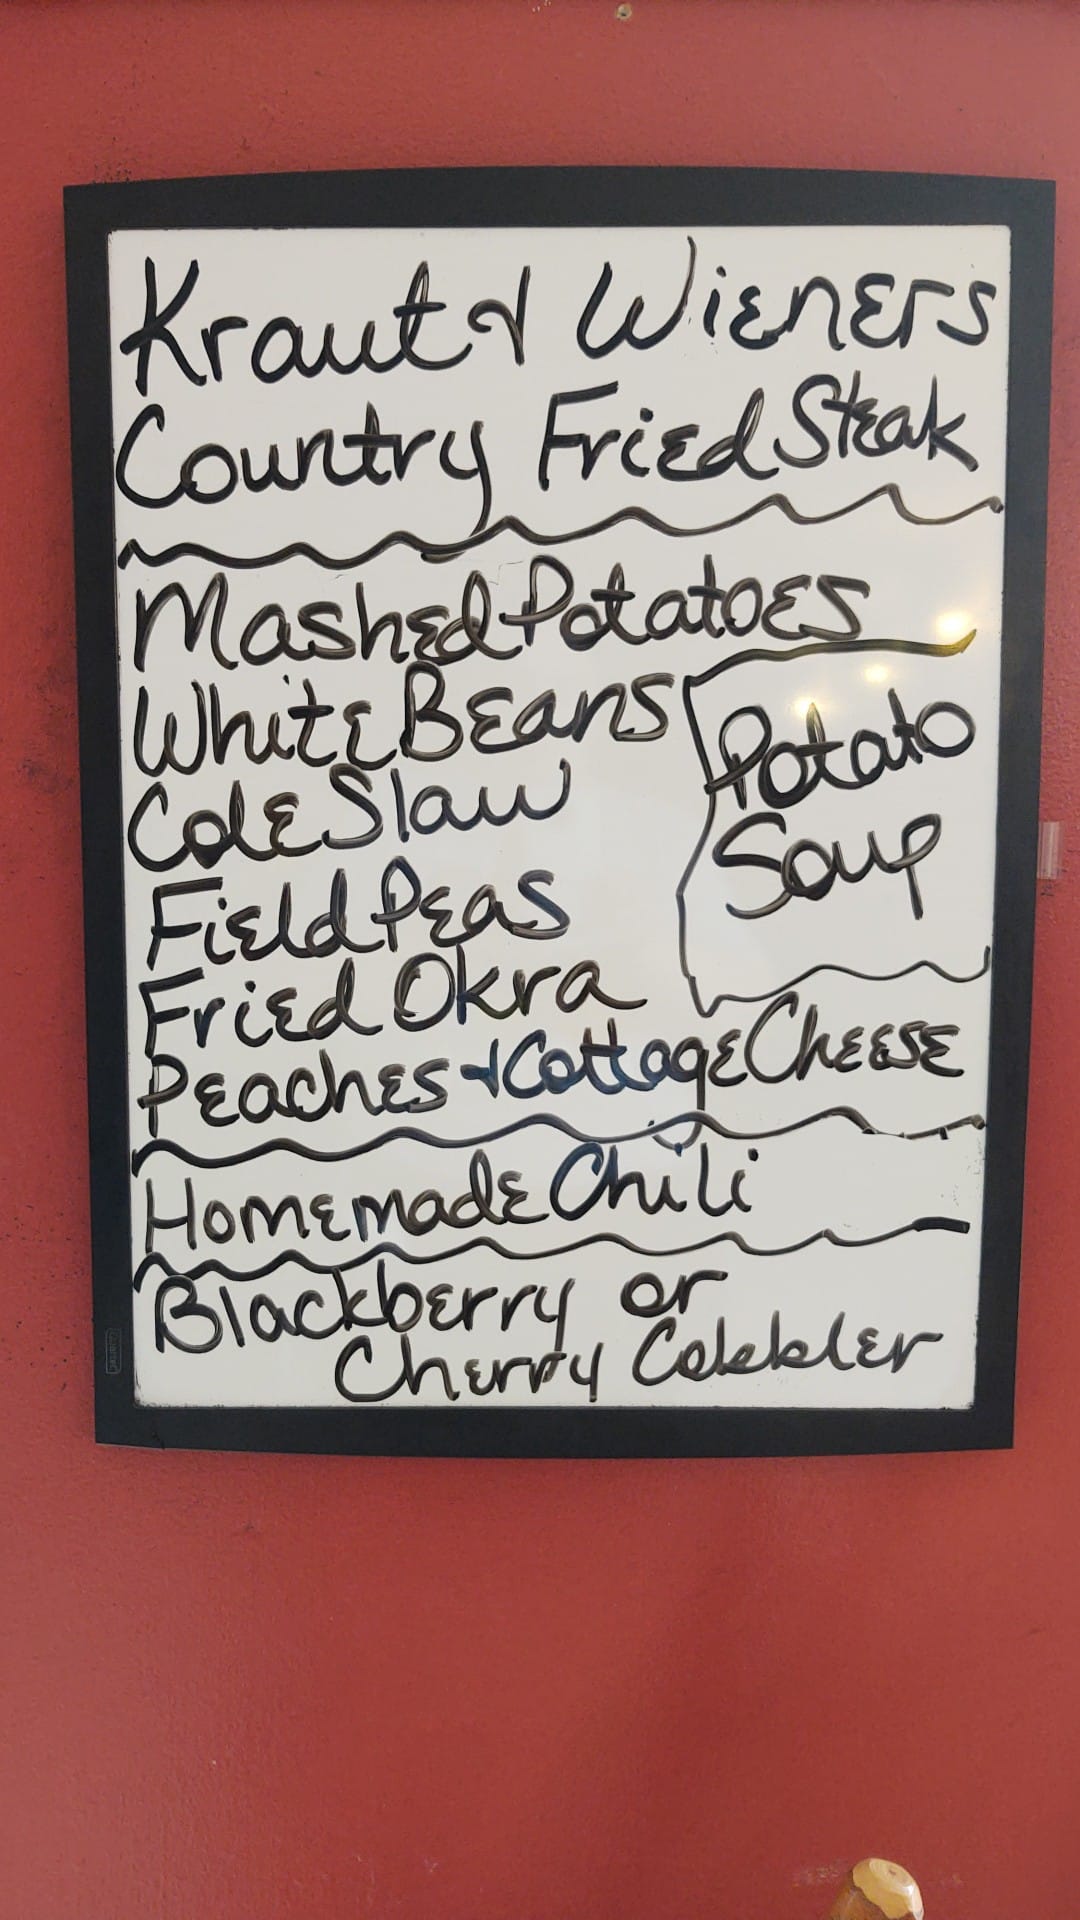 Kraut & Wieners
Country Fried Steak
Mashed Potatoes
White Beans
Cole Slaw
Field Peas
Fried Okra
Peaches & Cottage Cheese
Potato
Soup
Homemade Chili
Blackberry or
Cherry Cobbler